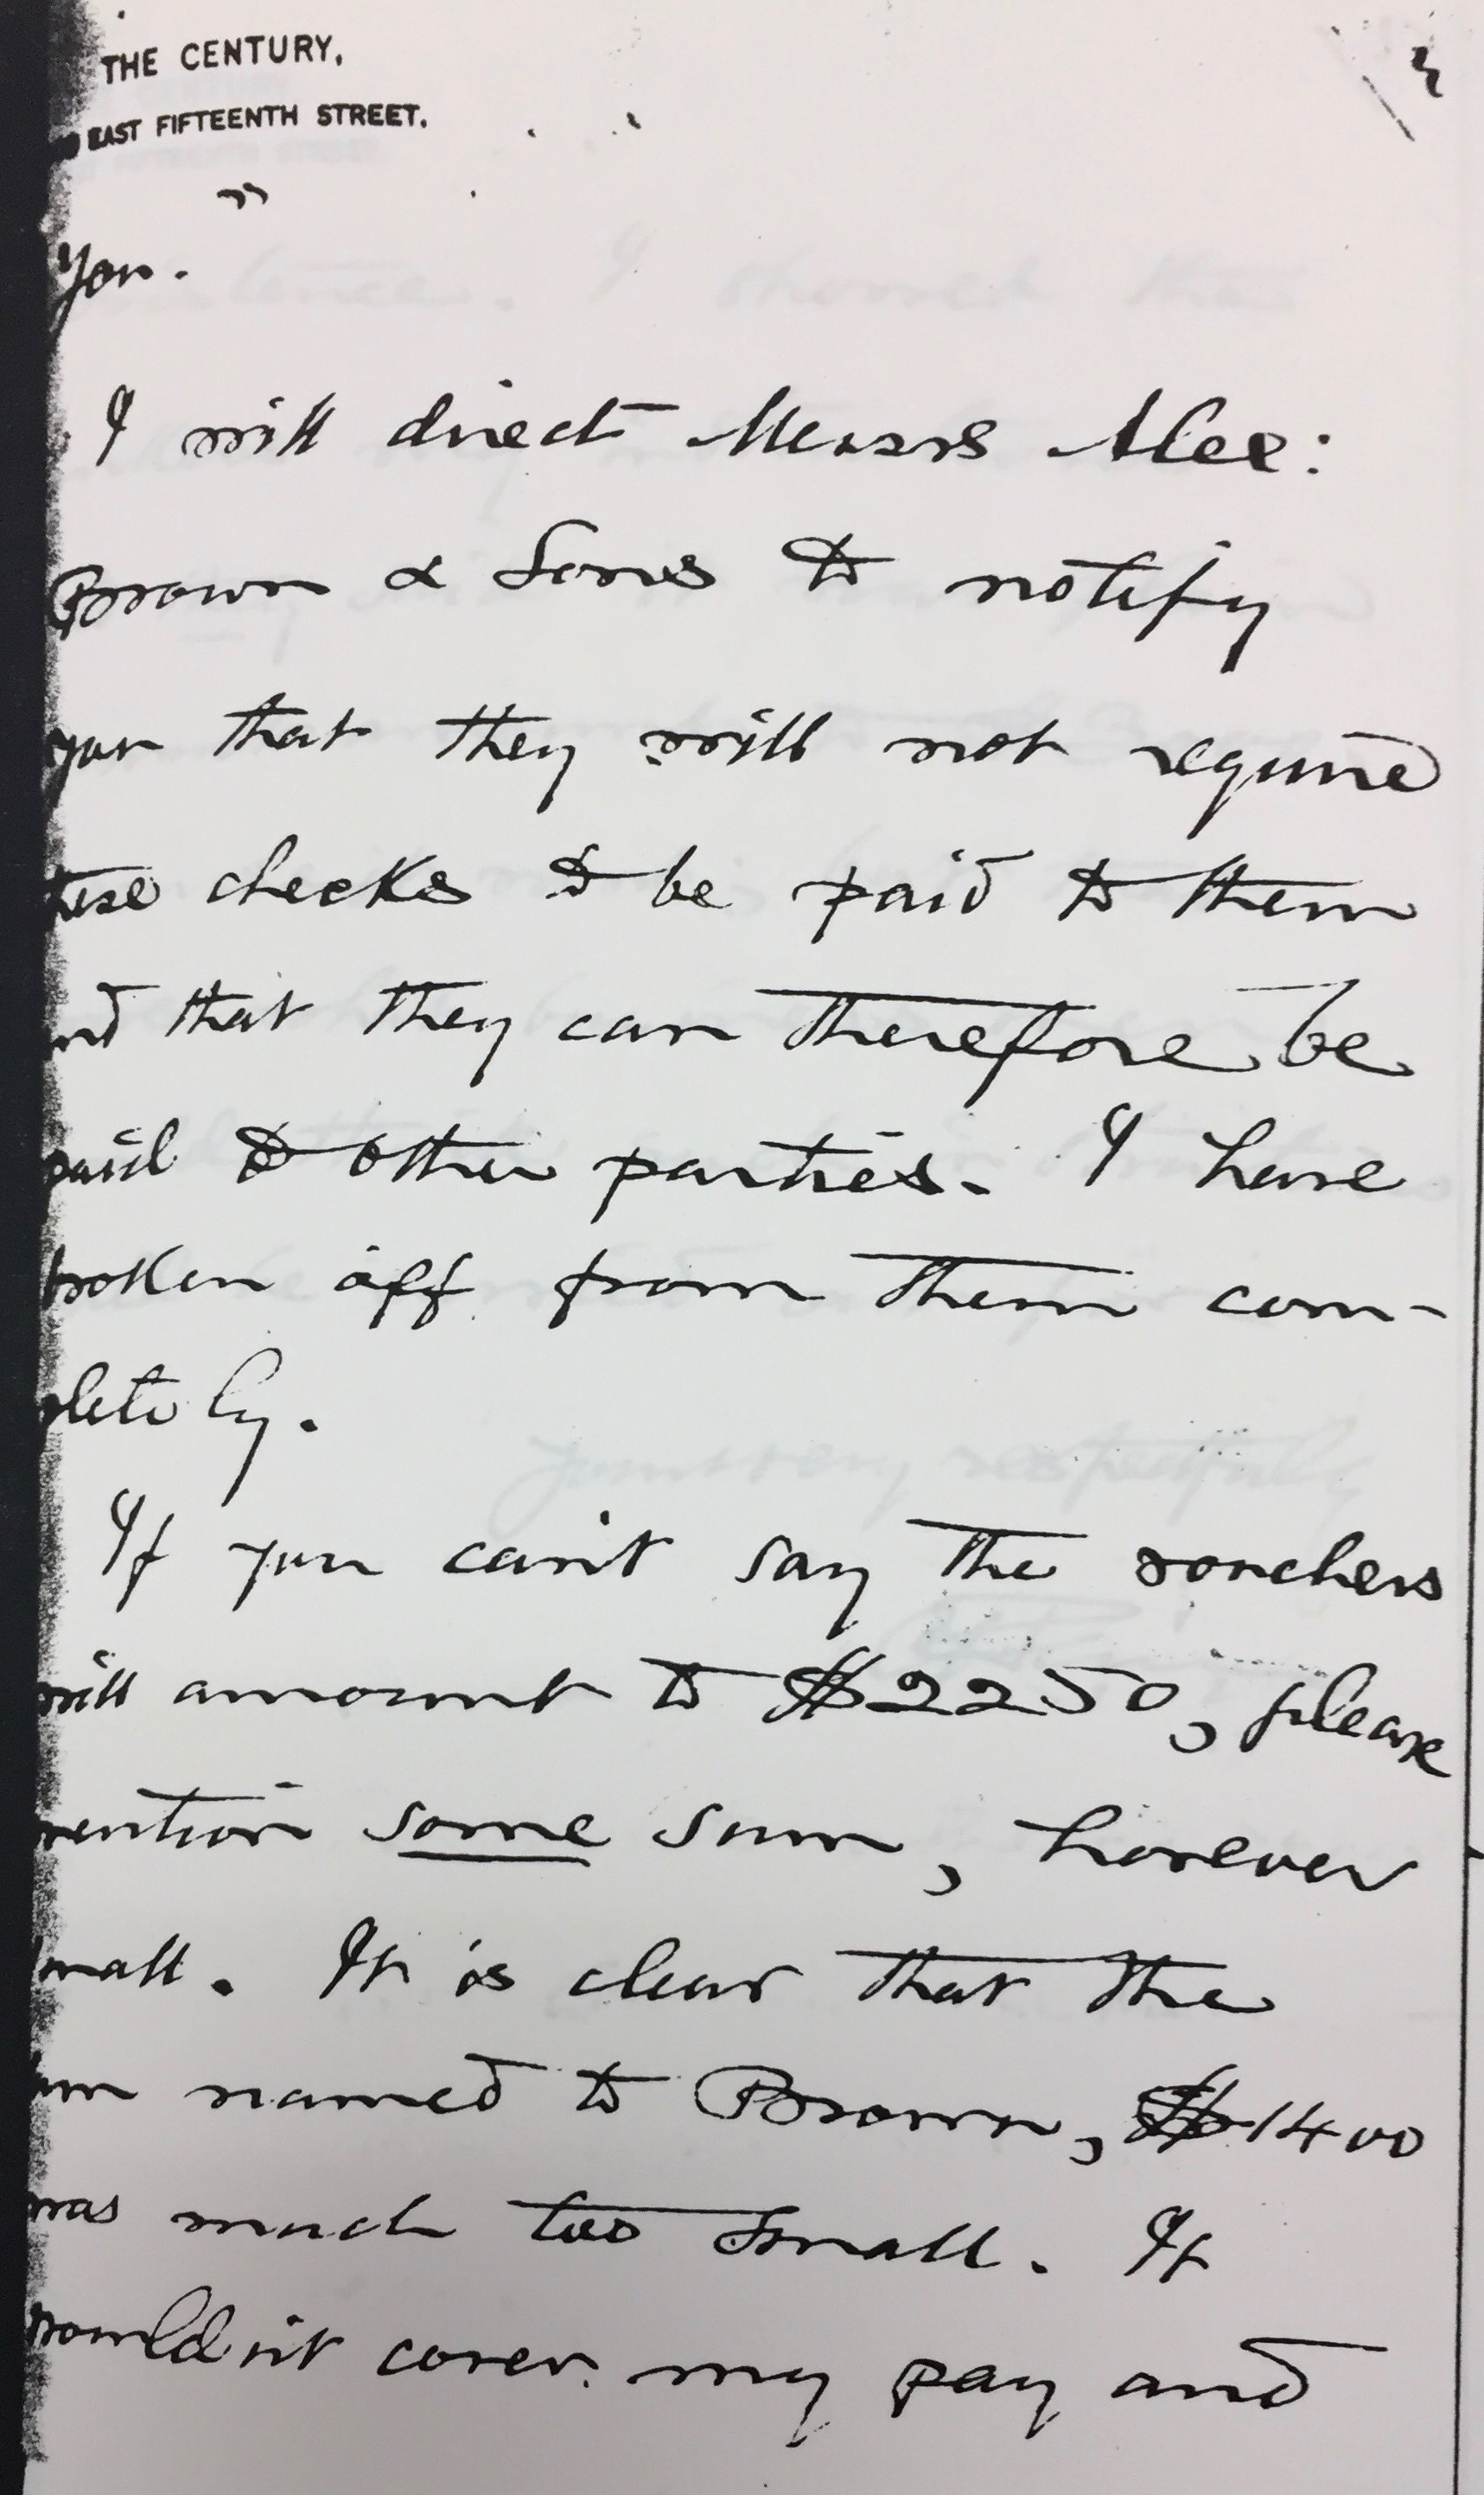 THE CENTURY,
EAST FIFTEENTH STREET.
3
you.
I will direct Messrs Alex:
Brown & Sons to notify
you that they will not require
these checks to be paid to them
and that they can therefore be
paid to other parties. I have
broken off from them com-
pletely.
If you can't say the vouchers
will amount to $2250, please
mention some sum, however
small. It is clear that the
sum named to Brown, $1400
was much too small. It
would n't cover my pay and